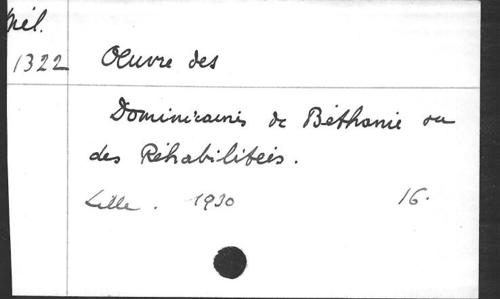 Mél.
1322 Oeuvre des
Dominicaines de Béthanie ou
des Réhabilitées.
Lille. 1930 16.